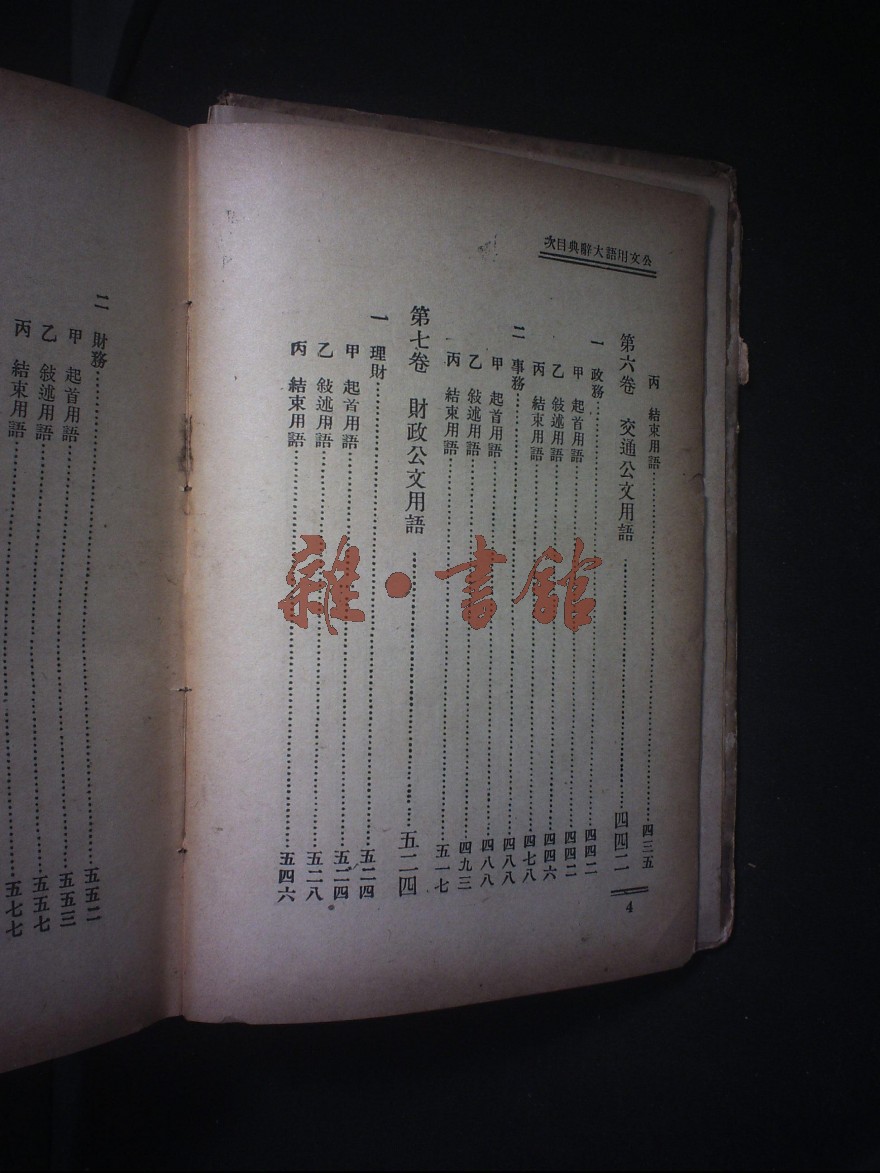 公文用語大辭典目次
丙 結束用語 四三五
第六卷 交通公文用語 四四二
一 政務 四四二
甲 起首用語 四四二
乙 敍述用語 四四六
丙 結束用語 四七八
二 事務 四八八
甲 起首用語 四八八
乙 敍述用語 四九三
丙 結束用語 五一七
第七卷 財政公文用語 五二四
一 理財 五二四
甲 起首用語 五二四
乙 敍述用語 五二八
丙 結束用語 五四六
4
二 財務 五五二
甲 起首用語 五五三
乙 敍述用語 五五七
丙 結束用語 五七七
雜·書館